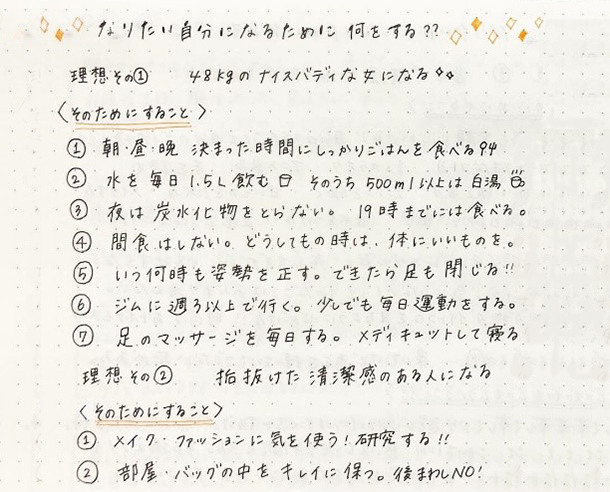 なりたい自分になるために何をする??
理想その① 48kgのナイスバディな女になる
〈そのためにすること〉
① 朝・昼・晩 決まった時間にしっかりごはんを食べる
② 水を毎日1.5L飲む そのうち500ml以上は白湯
③ 夜は炭水化物をとらない。19時までには食べる。
④ 間食はしない。どうしてもの時は、体にいいものを。
⑤ いつ何時も姿勢を正す。できたら足も閉じる!!
⑥ ジムに週3以上で行く。少しでも毎日運動をする。
⑦ 足のマッサージを毎日する。メディキュットして寝る
理想その② 垢抜けた清潔感のある人になる
〈そのためにすること〉
① メイク・ファッションに気を使う!研究する!!
② 部屋・バッグの中をキレイに保つ。後まわしNO!